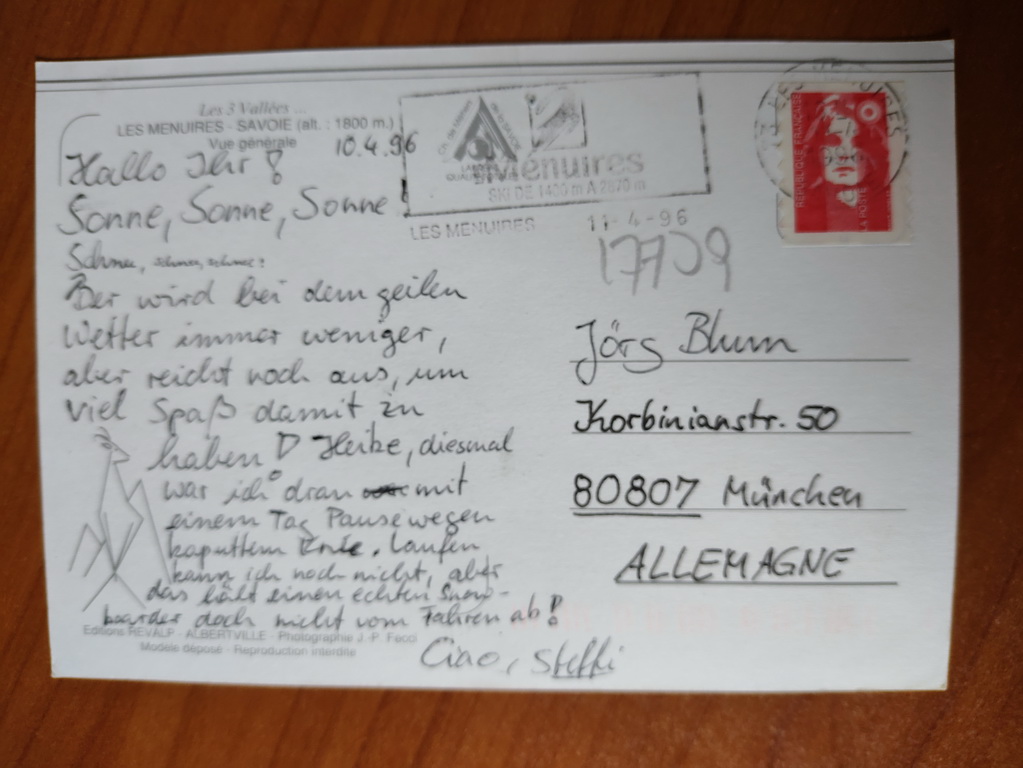 Les 3 Vallées ...
LES MENUIRES - SAVOIE (alt. : 1800 m.)
Vue générale
10.4.96
Hallo Ihr!
Sonne, Sonne, Sonne!
Schnee, schnee, schnee!
Der wird bei dem geilen
Wetter immer weniger,
aber reicht noch aus, um
viel Spaß damit zu
haben! Heike, diesmal
war ich dran mit
einem Tag Pause wegen
kaputtem Knie. Laufen
kann ich noch nicht, aber
das hält einen echten Snow-
boarder doch nicht vom Fahren ab!
Ciao, Steffi
Editions REVALP - ALBERTVILLE - Photographie J.-P.
Modèle déposé - Reproduction interdite
Ménuires
SKI DE 1400 m A 2870 m
LES MENUIRES 11-4-96
REPUBLIQUE FRANÇAISE
LA POSTE
17709
Jörg Blum
Korbinianstr. 50
80807 München
ALLEMAGNE